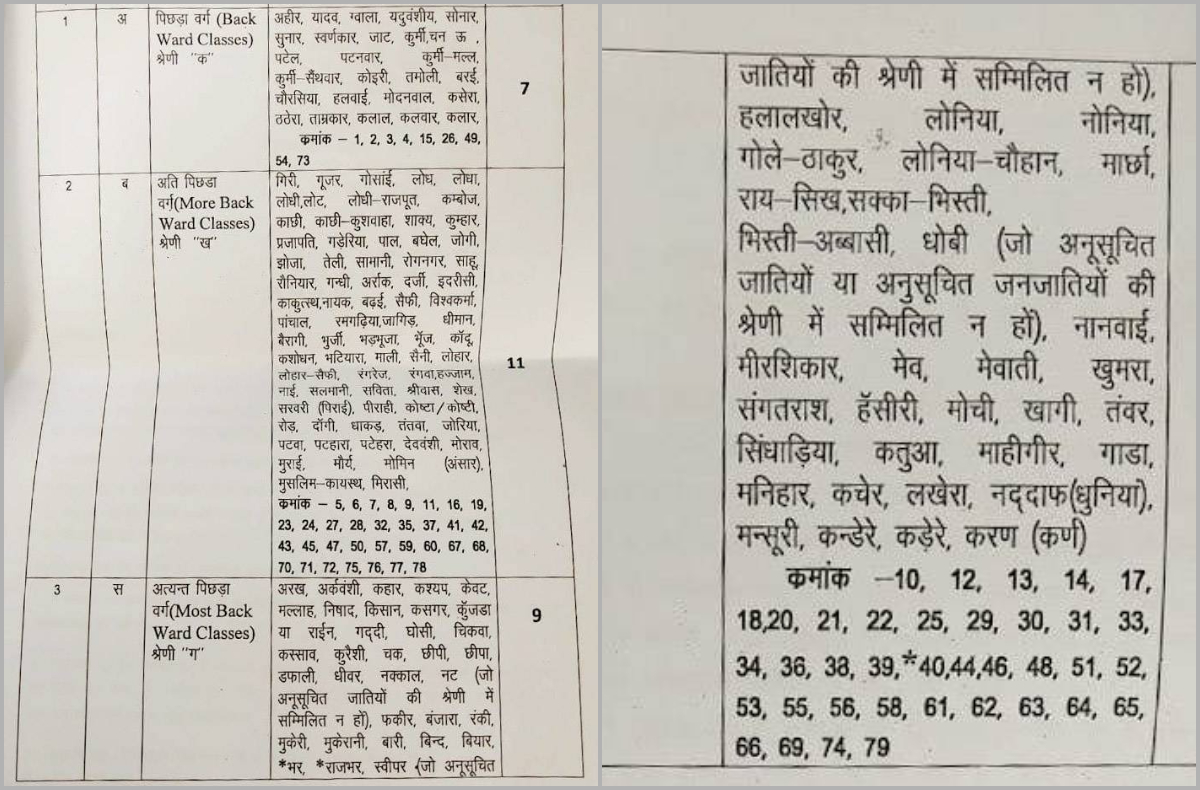 1 अ पिछड़ा वर्ग (Back
Ward Classes)
श्रेणी "क"
अहीर, यादव, ग्वाला, यदुवंशीय, सोनार,
सुनार, स्वर्णकार, जाट, कुर्मी,चन ऊ ,
पटेल, पटनवार, कुर्मी–मल्ल,
कुर्मी–सैंथवार, कोइरी, तमोली, बरई,
चौरसिया, हलवाई, मोदनवाल, कसेरा,
ठठेरा, ताम्रकार, कलाल, कलवार, कलार,
कमांक – 1, 2, 3, 4, 15, 26, 49,
54, 73
7
2 ब अति पिछडा
वर्ग(More Back
Ward Classes)
श्रेणी "ख"
गिरी, गूजर, गोसांई, लोध, लोधा,
लोधी,लोट, लोधी–राजपूत, कम्बोज,
काछी, काछी–कुशवाहा, शाक्य, कुम्हार,
प्रजापति, गड़ेरिया, पाल, बघेल, जोगी,
झोजा, तेली, सामानी, रोगनगर, साहू,
रौनियार, गन्धी, अर्राक, दर्जी, इदरीसी,
काकुत्स्थ,नायक, बढ़ई, सैफी, विश्वकर्मा,
पांचाल, रमगढ़िया,जागिड़, धीमान,
बैरागी, भुर्जी, भड़भूजा, भूँज, काँदू,
कशोधन, भटियारा, माली, सैनी, लोहार,
लोहार–सैफी, रंगरेज, रंगवा,हज्जाम,
नाई, सलमानी, सविता, श्रीवास, शेख,
सरवरी (पिराई), पीराही, कोष्टा/कोष्टी,
रोड़, दोंगी, धाकड़, तंतवा, जोरिया,
पटवा, पटहारा, पटेहरा, देववंशी, मोराव,
मुराई, मौर्य, मोमिन (अंसार),
मुसलिम–कायस्थ, मिरासी,
कमांक – 5, 6, 7, 8, 9, 11, 16, 19,
23, 24, 27, 28, 32, 35, 37, 41, 42,
43, 45, 47, 50, 57, 59, 60, 67, 68,
70, 71, 72, 75, 76, 77, 78
11
3 स अत्यन्त पिछड़ा
वर्ग(Most Back
Ward Classes)
श्रेणी "ग"
अरख, अर्कवंशी, कहार, कश्यप, केवट,
मल्लाह, निषाद, किसान, कसगर, कुँजडा
या राईन, गद्दी, घोसी, चिकवा,
कस्साव, कुरैशी, चक, छीपी, छीपा,
डफाली, धीवर, नक्काल, नट (जो
अनूसूचित जातियों की श्रेणी में
सम्मिलित न हों), फकीर, बंजारा, रंकी,
मुकेरी, मुकेरानी, बारी, बिन्द, बियार,
*भर, *राजभर, स्वीपर (जो अनूसूचित
9
जातियों की श्रेणी में सम्मिलित न हो),
हलालखोर, लोनिया, नोनिया,
गोले–ठाकुर, लोनिया–चौहान, मार्छा,
राय–सिख,सक्का–भिस्ती,
भिस्ती–अब्बासी, धोबी (जो अनूसूचित
जातियों या अनुसूचित जनजातियों की
श्रेणी में सम्मिलित न हों), नानवाई,
मीरशिकार, मेव, मेवाती, खुमरा,
संगतराश, हॅसीरी, मोची, खागी, तंवर,
सिंधाड़िया, कतुआ, माहीगीर, गाडा,
मनिहार, कचेर, लखेरा, नद्दाफ(धुनिया),
मन्सूरी, कन्डेरे, कड़ेरे, करण (कर्ण)
कमांक –10, 12, 13, 14, 17,
18,20, 21, 22, 25, 29, 30, 31, 33,
34, 36, 38, 39,*40,44,46, 48, 51, 52,
53, 55, 56, 58, 61, 62, 63, 64, 65,
66, 69, 74, 79